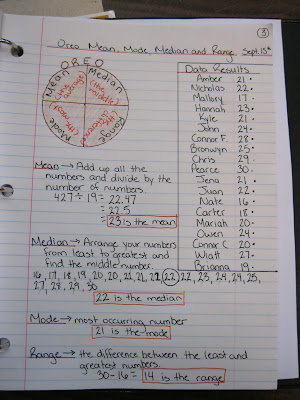 3
Oreo Mean, Mode, Median and Range Sept. 15th
OREO
Mean
(the average)
Median
(the middle)
Mode
(the most)
Range
(the difference)
Data Results
Amber 21
Nicholas 22
Mallory 17
Hannah 23
Kyle 21
John 24
Connor F. 28
Bronwyn 25
Chris 29
Pearce 30
Jena 21
Juan 22
Nate 16
Carter 18
Mariah 20
Owen 24
Connor C 20
Wiatt 27
Brianna 19
Mean → Add up all the
numbers and divide by the
number of numbers.
427 ÷ 19 = 22.47
= 22.5
= 23 is the mean
Median → Arrange your numbers
from least to greatest and
find the middle number.
16, 17, 18, 19, 20, 20, 21, 21, 21, 22, 22, 23, 24, 24, 25,
27, 28, 29, 30
22 is the median
Mode → most occurring number
21 is the mode
Range → the difference between the least and
greatest numbers.
30-16 = 14 is the range